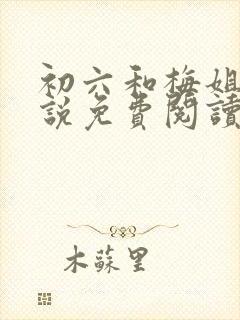 初六和梅姐
說免費閱讀
木蘇里